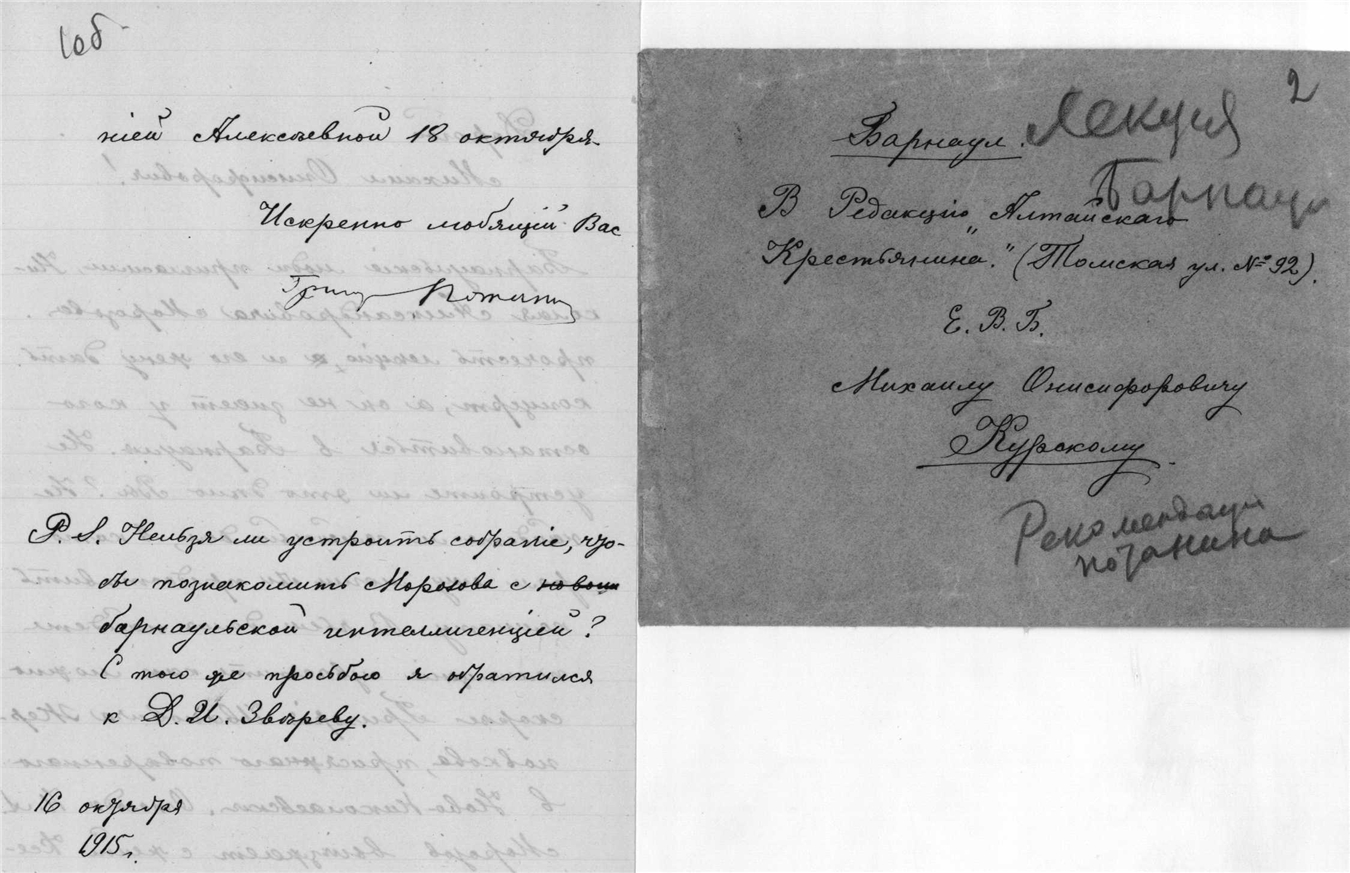 1об
ніей Алексѣевной 18 октября.
Искренно любящій Вас
Григ Потанин
P. S. Нельзя ли устроить собраніе, что-
бы познакомить Морозова с новою
барнаульской интеллигенціей?
С тою же просьбою я обратился
к Д. И. Звѣреву.
16 октября
1915 г.
2
Лекция
Барнаул
Барнаул.
В Редакцію „Алтайскаго
Крестьянина." (Томская ул. № 92).
Е. В. Б.
Михаилу Онисифоровичу
Курскому.
Рекомендация
Потанина